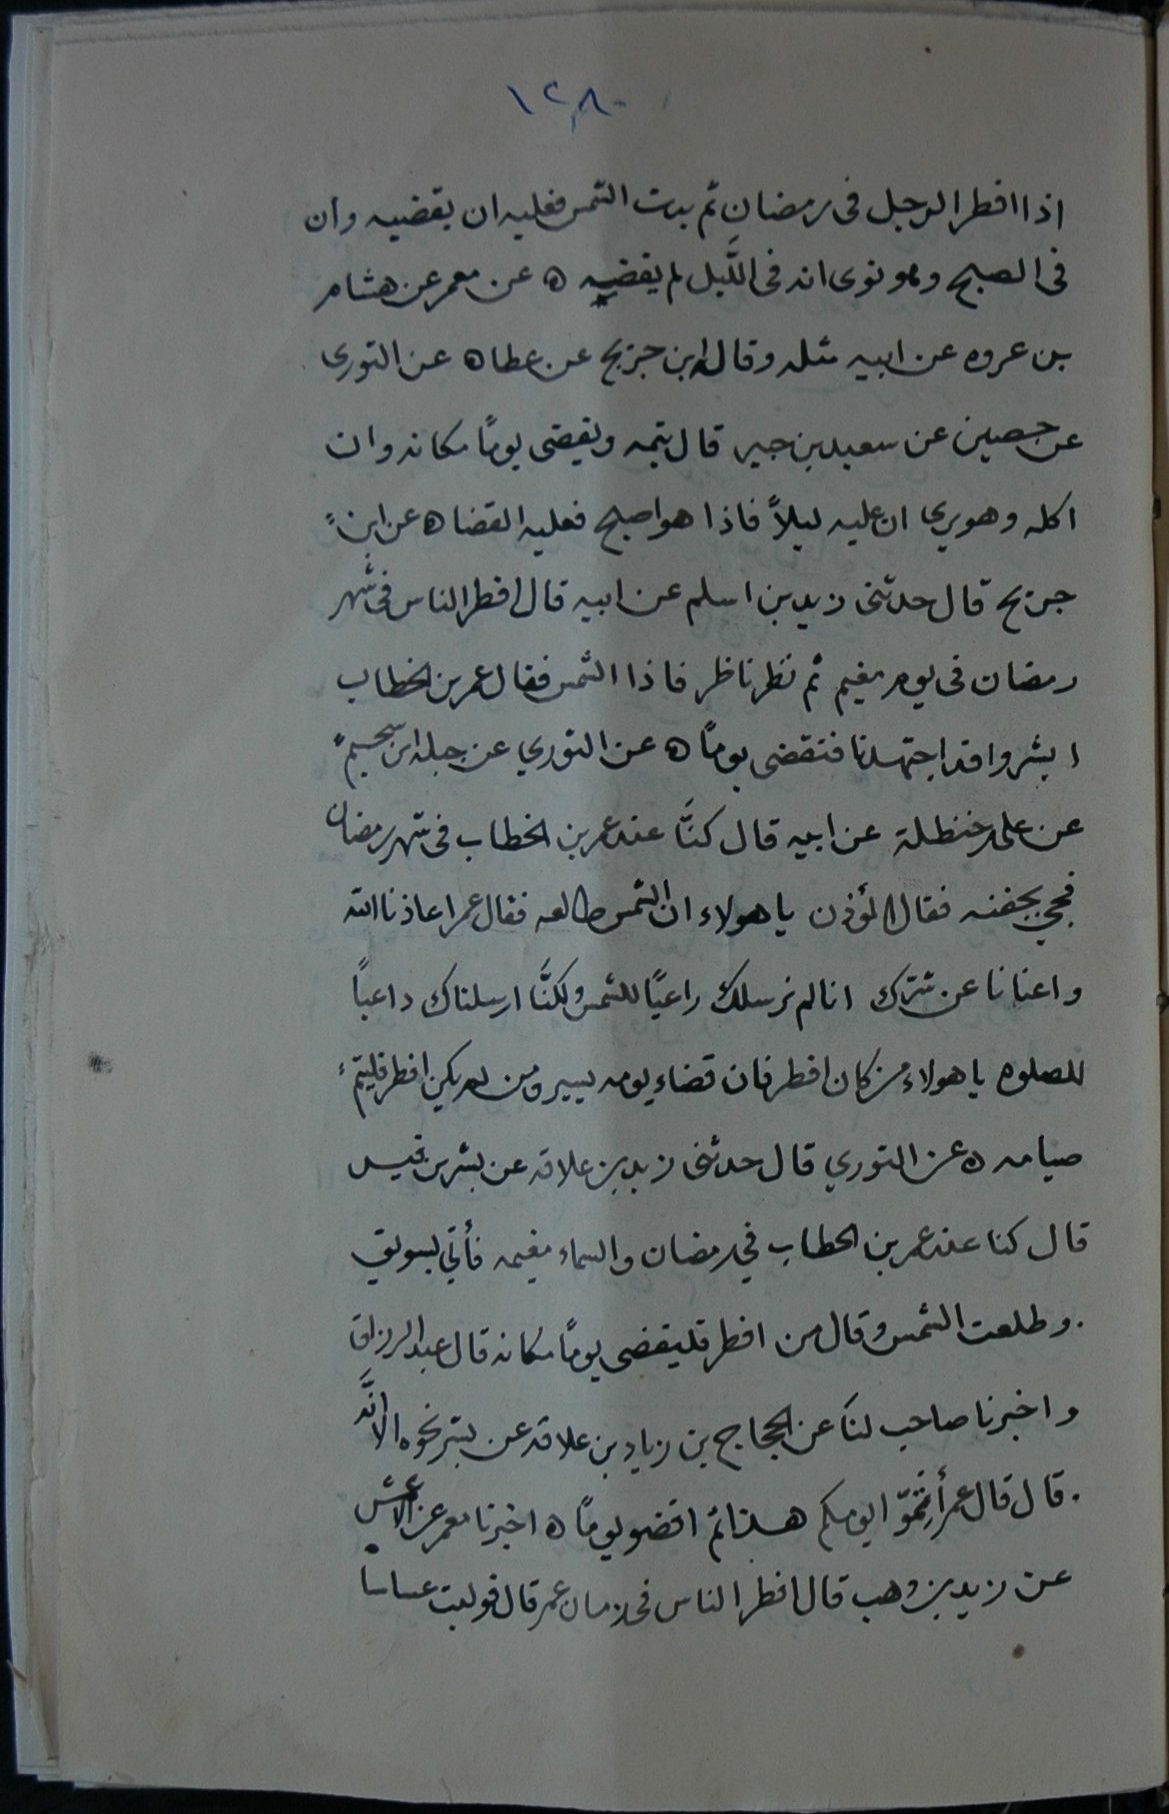 ١٢٨٠
اذا افطر الرجل فى رمضان ثم بدت الشمس فعليه ان يقضيه وان
فى الصبح وهو نوى انه فى اللَّيل لم يقضيه ه عن معمر عن هشام
بن عروه عن ابيه مثله وقال ابن جريج عن عطا ه عن الثورى
عن حصين عن سعيد بن جبير قال يتمه ويقضى يومًا مكانه وان
اكله وهو يرى ان عليه ليلاً فاذا هو اصبح فعليه القضا ه عن ابن
جريج قال حدثنى زيد بن اسلم عن ابيه قال افطر الناس فى شهر
رمضان فى يوم مغيم ثم نظر ناظر فاذا الشمس فقال عمر بن الخطاب
ابشروا قد اجتهدنا فنقضى يومًا ه عن الثوري عن جبله ابن سحيم
عن على بن حنظلة عن ابيه قال كنَّا عند عمر بن الخطاب فى شهر رمضان
فجئ بجفنه فقال المؤذن يا هولاء ان الشمس طالعه فقال عمر اعاذنا الله
واعنانا عن شرك انا لم نرسلك راعيًا للشمس ولكنَّا ارسلناك داعياً
للصلوه يا هولاء من كان افطر فان قضاء يومه يسير ومن لم يكن افطر فليتم
صيامه ه عن الثوري قال حدثنى زيد بن علاقه عن بشر بن قيس
قال كنا عند عمر بن الخطاب في رمضان والسماء مغيمه فأتي بسويق
وطلعت الشمس وقال من افطر فليقضى يومًا مكانه قال عبد الرزاق
واخبرنا صاحب لنا عن الحجاج بن زياد بن علاقه عن بشر نحوه الا انَّه
قال قال عمر أتمّوا يومكم هذا ثم اقضو يومًا ه اخبرنا معمر عن الاعمش
عن زيد بن وهب قال افطر الناس فى زمان عمر قال فوليت عساسا